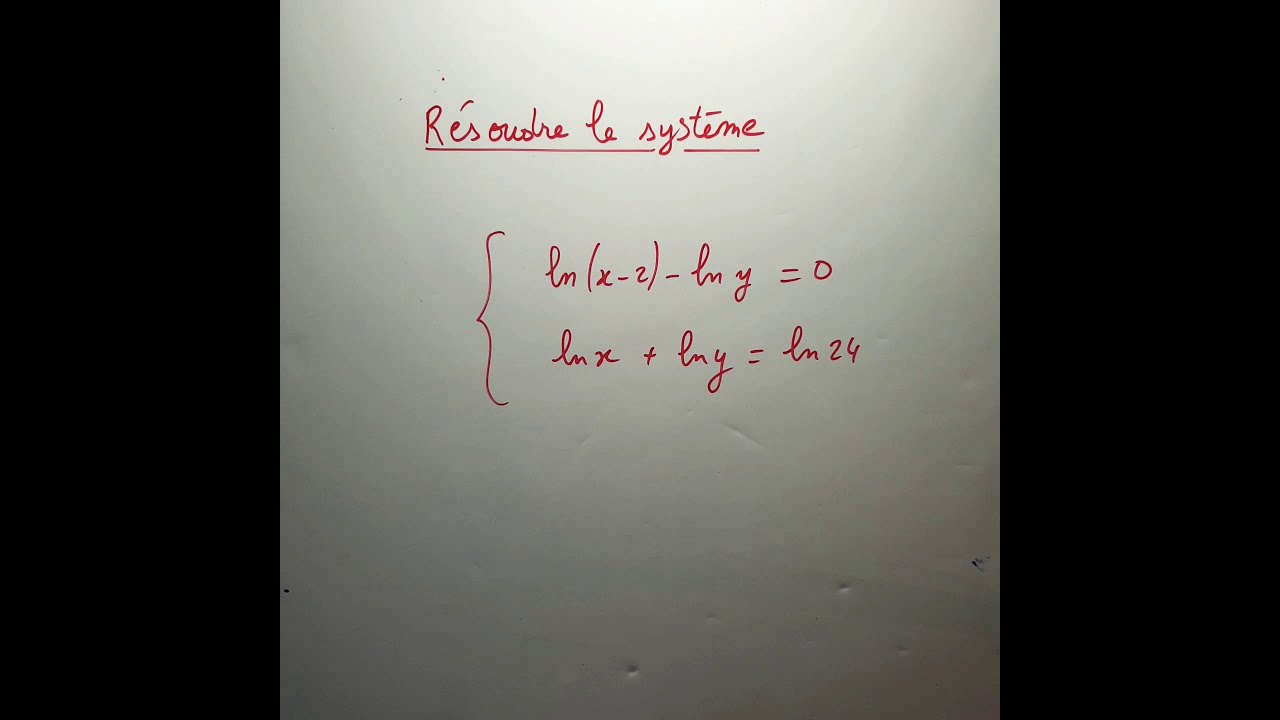 Résoudre le système
ln(x-2) - ln y = 0
ln x + ln y = ln 24